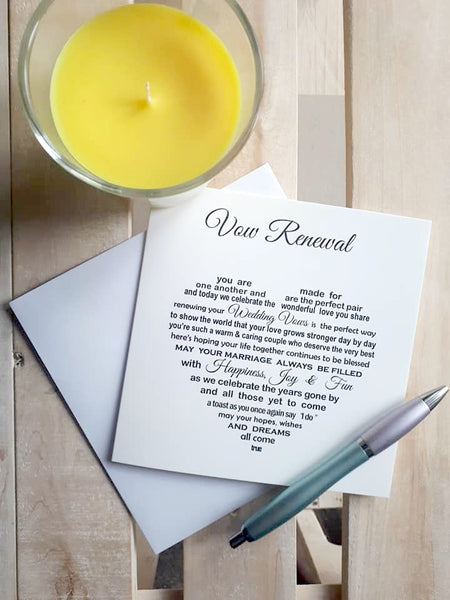 Vow Renewal
you are made for
one another and are the perfect pair
and today we celebrate the wonderful love you share
renewing your Wedding Vows is the perfect way
to show the world that your love grows stronger day by day
you're such a warm & caring couple who deserve the very best
here's hoping your life together continues to be blessed
MAY YOUR MARRIAGE ALWAYS BE FILLED
with Happiness, Joy & Fun
as we celebrate the years gone by
and all those yet to come
a toast as you once again say "I do"
may your hopes, wishes
AND DREAMS
all come
true